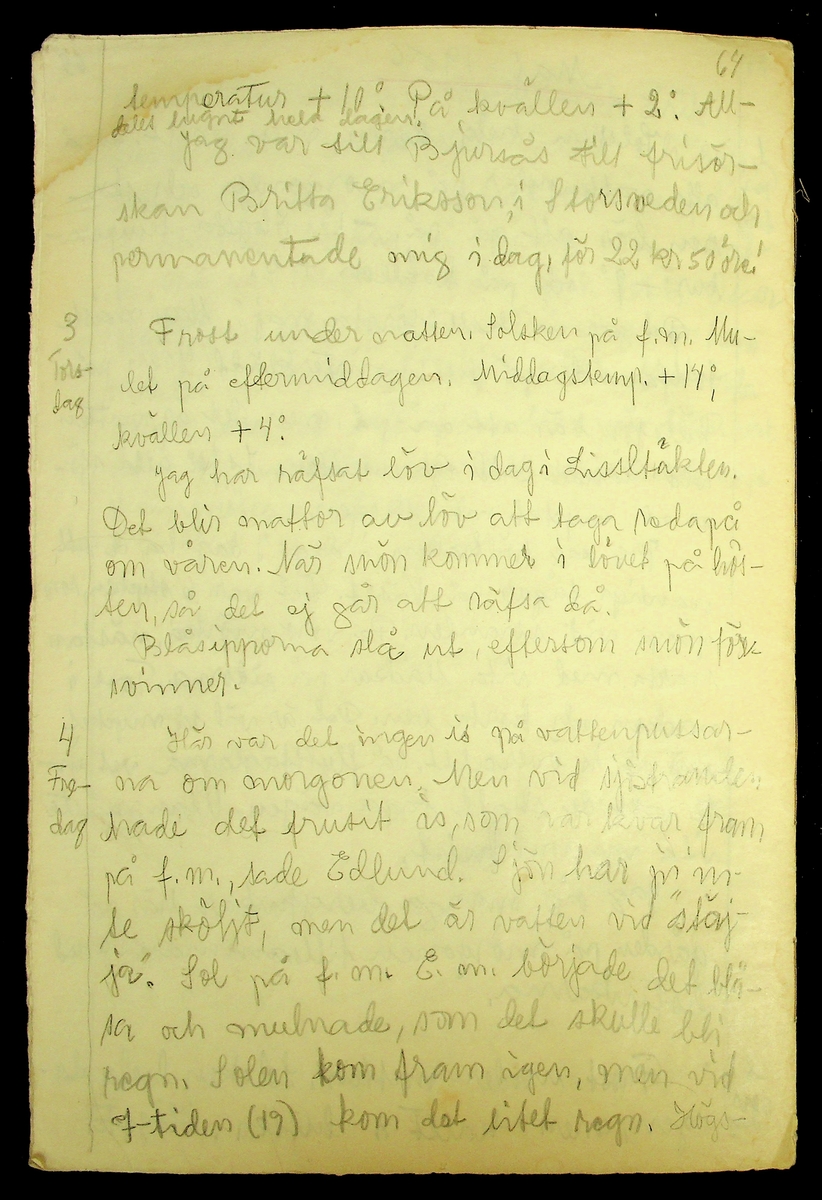 64
temperatur + 10° På kvällen + 2°. All-
deles lugnt hela dagen.
Jag var till Bjursås till frisör-
skan Britta Eriksson, i Storsveden och
permanentade mig i dag, för 22 kr 50 öre!
3
Tors-
dag
Frost under natten. Solsken på f.m. Mu-
let på eftermiddagen. Middagstemp. + 14°,
kvällen + 4°.
Jag har räfsat löv i dag i Lissltäkten.
Det blir mattor av löv att taga reda på
om våren. När snön kommer i lövet på hös-
ten, så det ej går att räfsa då.
Blåsipporna slå ut, eftersom snön för-
svinner.
4
Fre-
dag
Här var det ingen is på vattenpussar-
na om morgonen. Men vid sjöstranden
hade det frusit is, som var kvar fram
på f.m., sade Edlund. Sjön har ju in-
te sköljt, men det är vatten vid "stäj-
ja". Sol på f.m. E.m. började det blå-
sa och mulnade, som det skulle bli
regn. Solen kom fram igen, men vid
7-tiden (19) kom det litet regn. Högs-